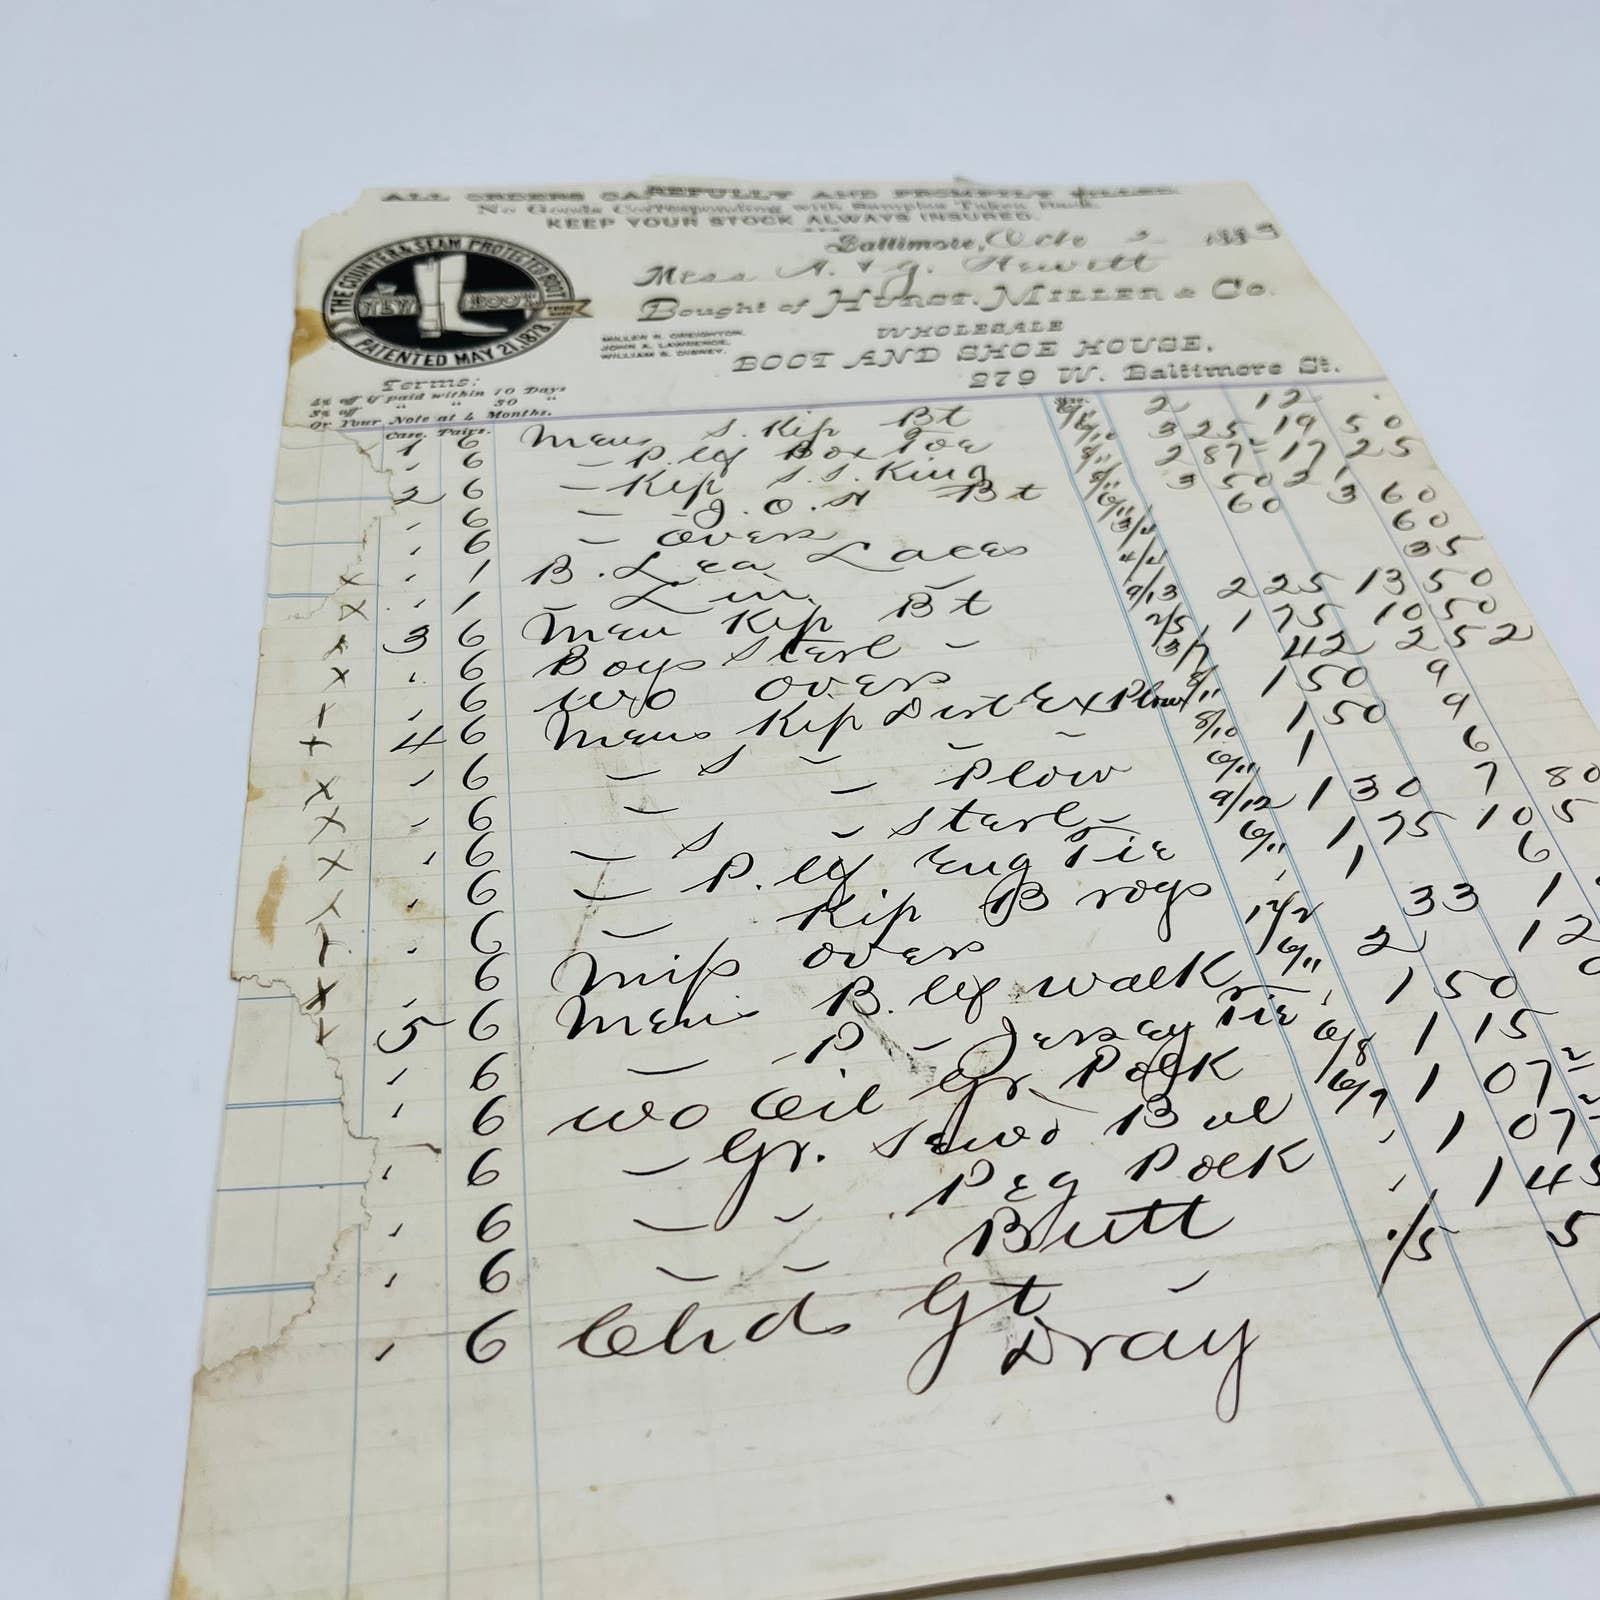 ALL ORDERS CAREFULLY AND PROMPTLY FILLED
No Goods Corresponding with Samples Taken Back.
KEEP YOUR STOCK ALWAYS INSURED.
Baltimore, Octo 2 1883
Mess A. & J. Hewitt
Bought of HURST, MILLER & Co.
WHOLESALE
BOOT AND SHOE HOUSE,
279 W. Baltimore St.
THE COUNTER & SEAM PROTECTED BOOT
NEW BOOT
TRADE MARK
PATENTED MAY 21, 1878.
MILLER R. CREIGHTON,
JOHN A. LAWRENCE,
WILLIAM B. DISNEY.
Terms:
4% off if paid within 10 Days
3% off " " 30 "
Or Your Note at 4 Months.
Case. Pairs.
1 6 Mens S. Kip Bt 2 12
6 - P. lf Box Toe 3 25 19 50
2 6 - Kip S.S. King 2 87 17 25
6 - J.O.H Bt 3 50 21
6 - Overs 60 3 60
1 B. Lea Laces 60
1 - Lin - 35
3 6 Men Kip Bt 9/13 2 25 13 50
6 Boys Sterl - 2/5 1 75 10 50
6 wo overs 3/7 42 2 52
4 6 Mens Kip Dirt Ex Plow 6/11 1 50 9
6 - S - - - 8/10 1 50 9
6 - - Plow 6/11 1 6
6 - S - Sterl - 9/12 1 30 7 80
6 - P. lf Eng Tie 6/11 1 75 10 5
6 - Kip Brogs 1 6
6 Miss overs 12/2 33 1
5 6 Mens B. lf walk 6/11 2 12
6 - P - Jersey Tie 1 50
6 wo Oil Gr. Polk 6/8 1 15
6 - Gr. Sewd Bal 6/7 1 07
6 - - Peg Polk 1 07
6 - - Butt 1 45
6 Chds Gt - ./5 5
Dray